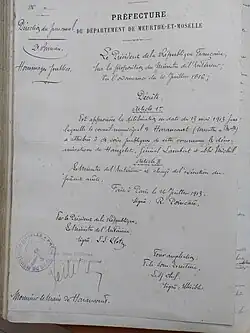 PRÉFECTURE
DU DÉPARTEMENT DE MEURTHE-ET-MOSELLE
Direction du personnel
Hommages publics
Le Président de la République Française,
Sur la proposition du Ministre de l'Intérieur,
Vu l'ordonnance du 10 Juillet 1816,
Décrète
Article 1er
Est approuvée la délibération en date du 13 mai 1913 par
laquelle le conseil municipal d'Homécourt (Meurthe & Mlle)
a attribué à des voies publiques de cette commune la déno-
mination de
Article II
Le Ministre de l'Intérieur est chargé de l'exécution du
présent décret.
Fait à Paris le 26 Juillet 1913.
Signé R. Poincaré
Par le Président de la République,
Le Ministre de l'Intérieur
Signé Klotz
Pour ampliation,
Monsieur le Maire de